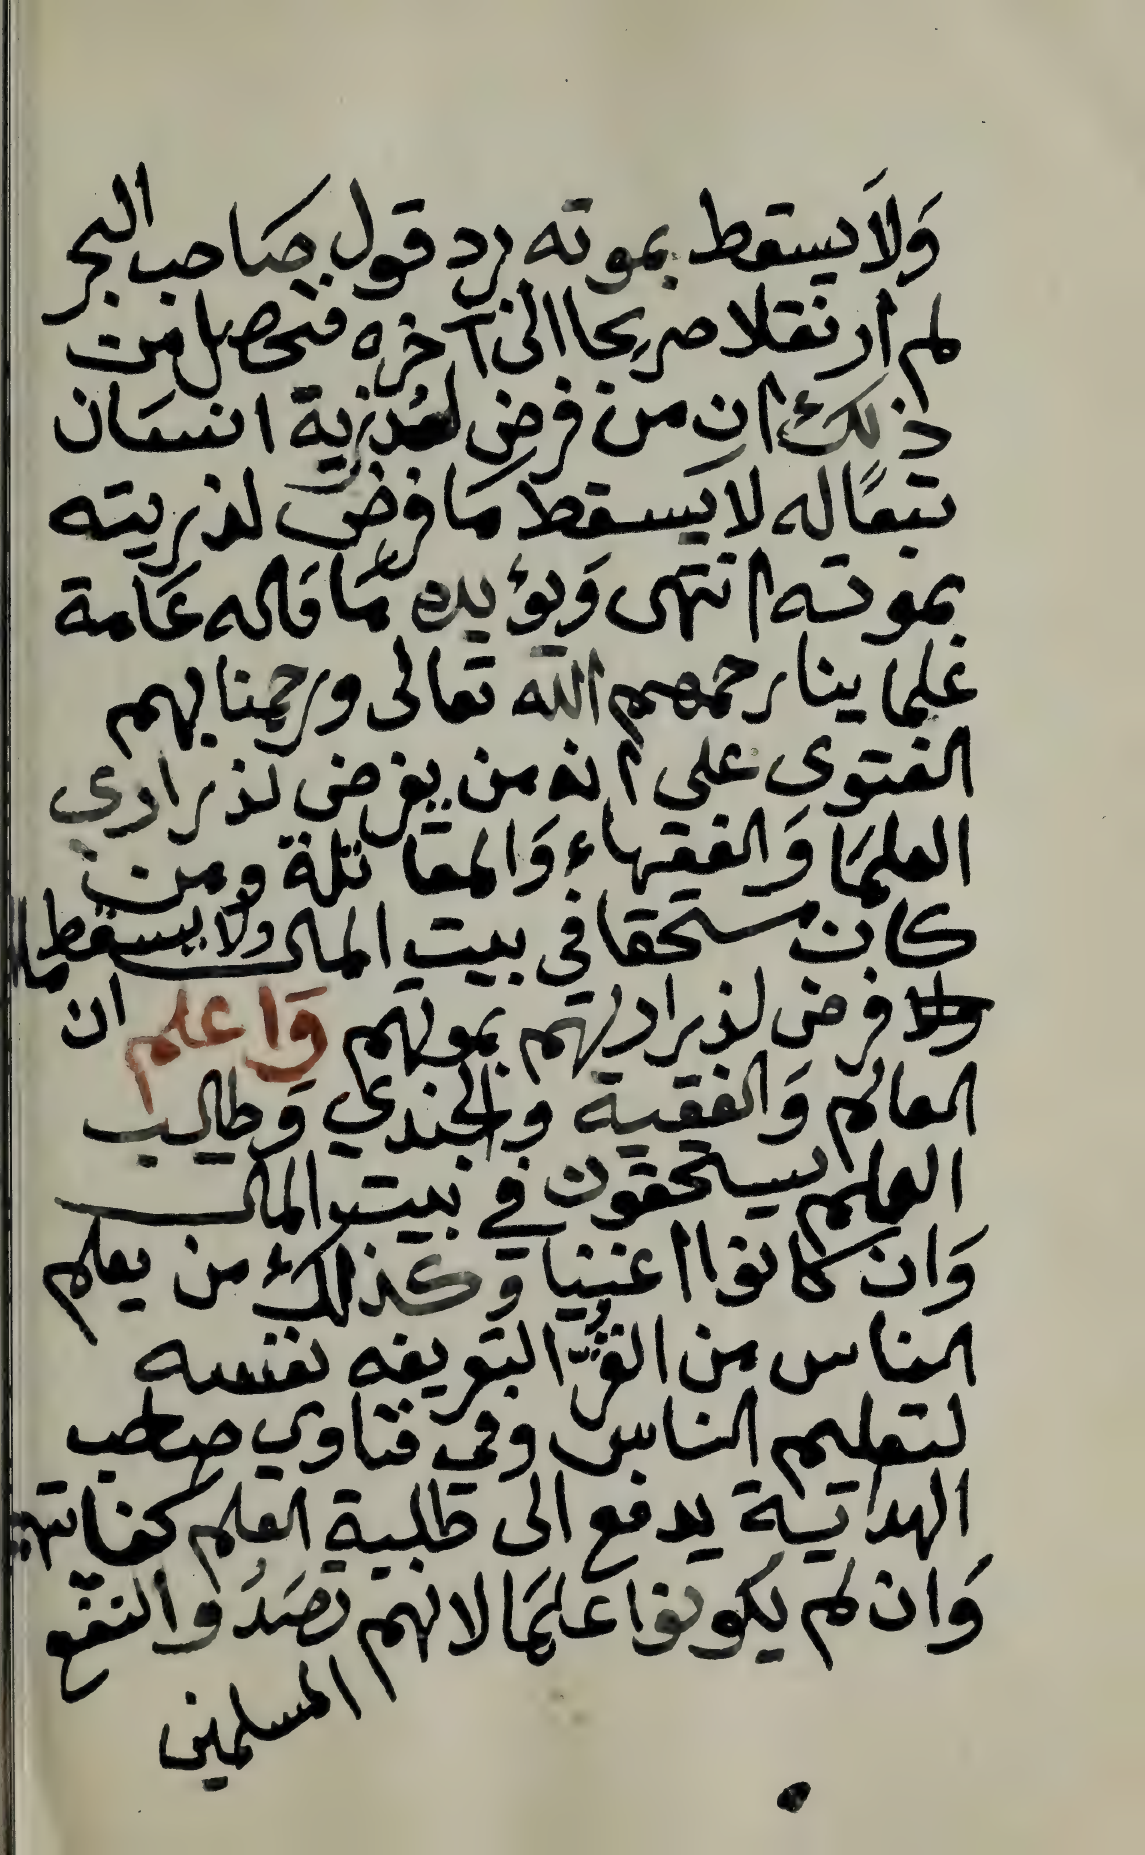 وَلَا يسقط بموته يرد قول صاحب البحر
لم ار نقلا صريحا الى آخره فتحصل من
ذلك ان من فرض لذرية انسان
تبعًا له لا يسقط ما فرض لذريته
بموته انتهى وَيؤيده مَا قَاله عَامة
علماينا رحمهم الله تعالى ورحمنا بهم
الفتوى على انه من يفرض لذراري
العلمَا وَالفقهاء وَالمقاتلة ومن
كان مستحقا في بيت المال ولا يسقط ما
فرض لذراريهم بموتهم وَاعلم ان
العالم وَالفقيه والجندي وَطالب
العلم يستحقون في بيت المال
وَان كانوا اغنيا وكذلك من يعلم
الناس من القرّ البتويفه نفسه
لتعليم الناس وفي فتاوي صاحب
الهداتية يدفع الى طلبية العلم كفاتهم
وَان لم يكونوا علمَا لانهم تصَدُوا النفع
المسلمين